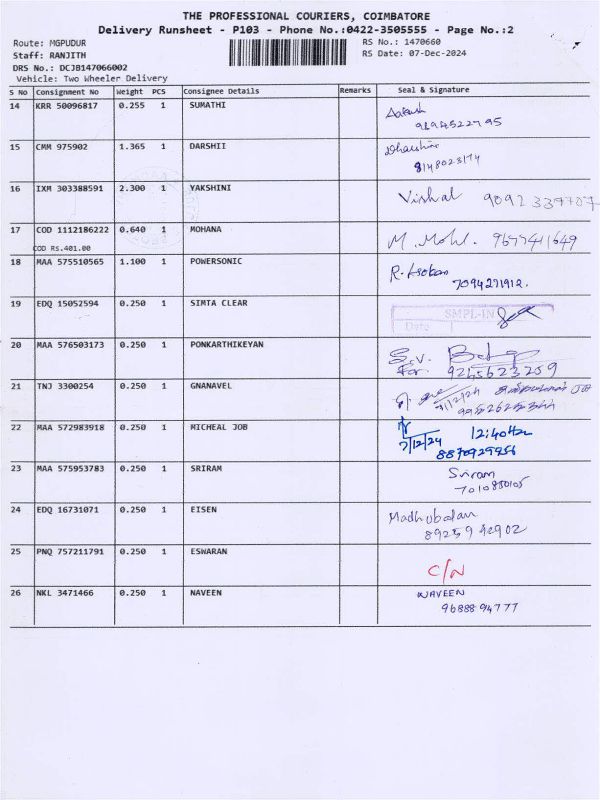 THE PROFESSIONAL COURIERS, COIMBATORE
Delivery Runsheet - P103 - Phone No.:0422-3505555 - Page No.:2
Route: MGPUDUR RS No.: 1470660
Staff: RANJITH RS Date: 07-Dec-2024
DRS No.: DCJB147066002
Vehicle: Two Wheeler Delivery
S No Consignment No Weight PCS Consignee Details Remarks Seal & Signature
14 KRR 50096817 0.255 1 SUMATHI
15 CMM 975902 1.365 1 DARSHII
8148023174
16 IXM 303388591 2.300 1 YAKSHINI Vishal
17 COD 1112186222 0.640 1 MOHANA M. 9677411649
COD Rs.401.00
18 MAA 575510565 1.100 1 POWERSONIC R.
7094271912.
19 EDQ 15052594 0.250 1 SIMTA CLEAR SMPL-IN
Date
20 MAA 576503173 0.250 1 PONKARTHIKEYAN S.V.
For 9245623259
21 TNJ 3300254 0.250 1 GNANAVEL
7/12/24
22 MAA 572983918 0.250 1 MICHEAL JOB 12:40
7/12/24 8870929956
23 MAA 575953783 0.250 1 SRIRAM Sriram
24 EDQ 16731071 0.250 1 EISEN Madhubalan
8925942902
25 PNQ 757211791 0.250 1 ESWARAN C/N
26 NKL 3471466 0.250 1 NAVEEN NAVEEN
9688894777